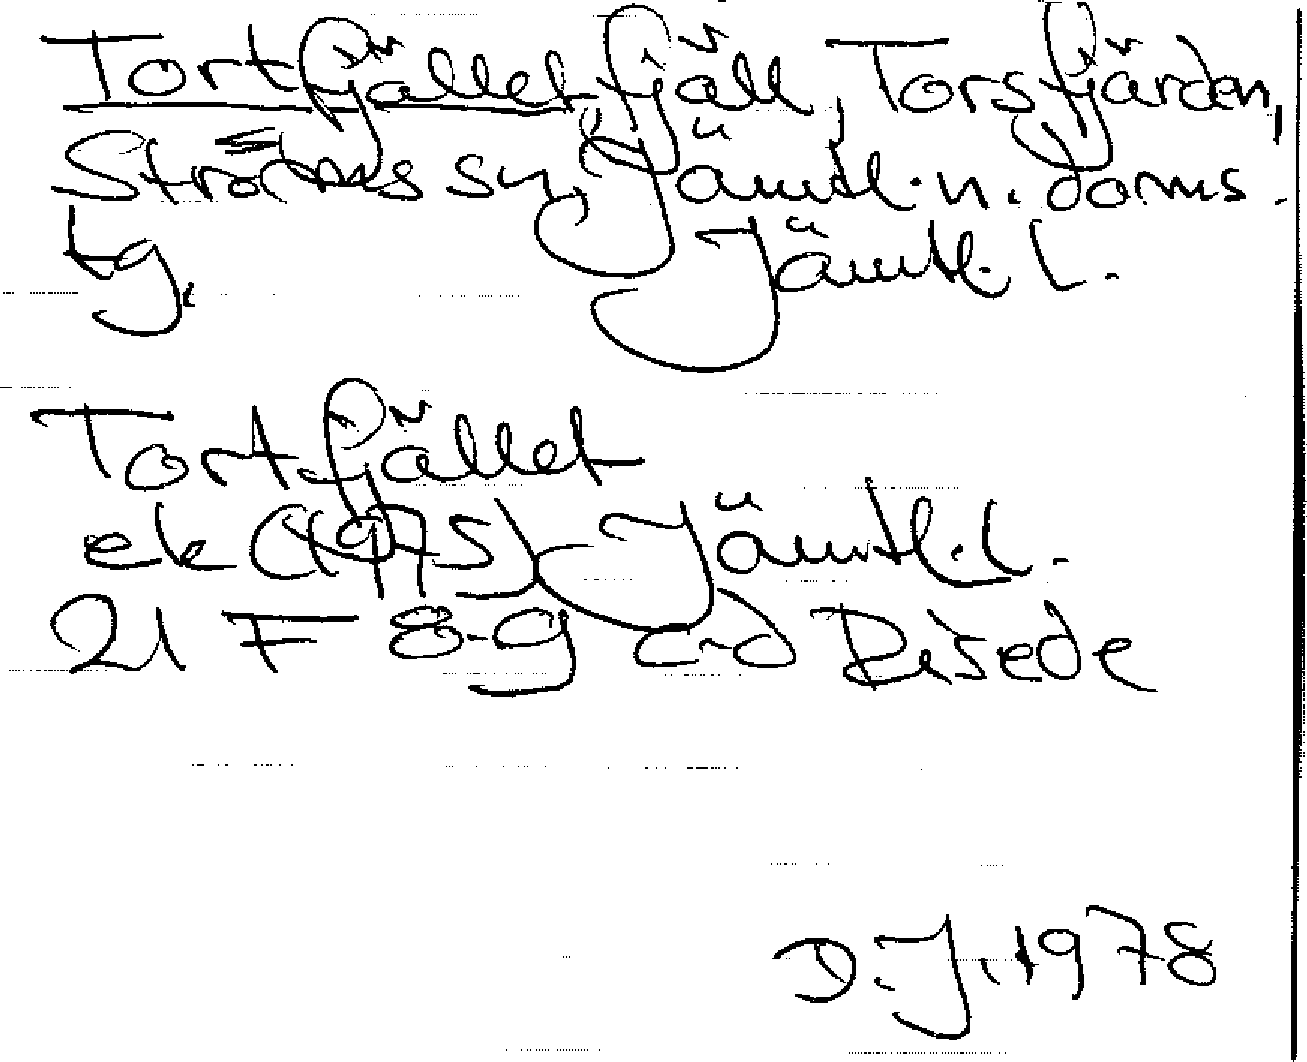 Tortfjället fjäll, Torsfjärden,
Ströms sn, Jämtl. n. doms.
tg, Jämtl. l.
Tortfjället
ek (1975) Jämtl. l.
21 F 8-9 c-d Risede
D.J. 1978